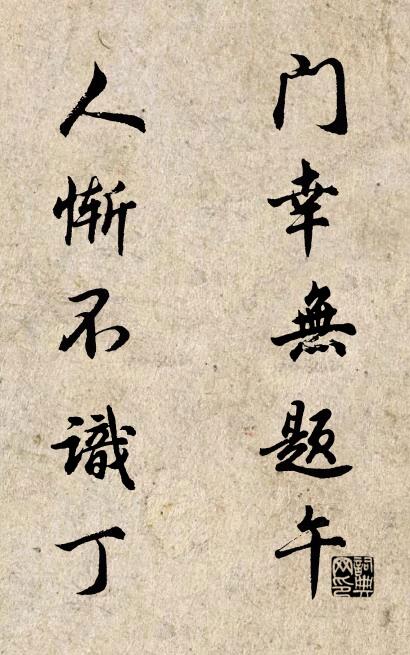 门幸無题午
人惭不識丁
詞典网印